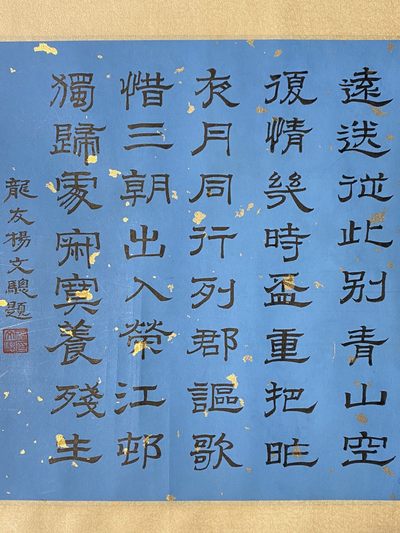 遠送從此别青山空
復情幾時盃重把昨
夜月同行列郡謳歌
惜三朝出入榮江邨
獨歸處寂寞養殘生
龍友楊文驄題